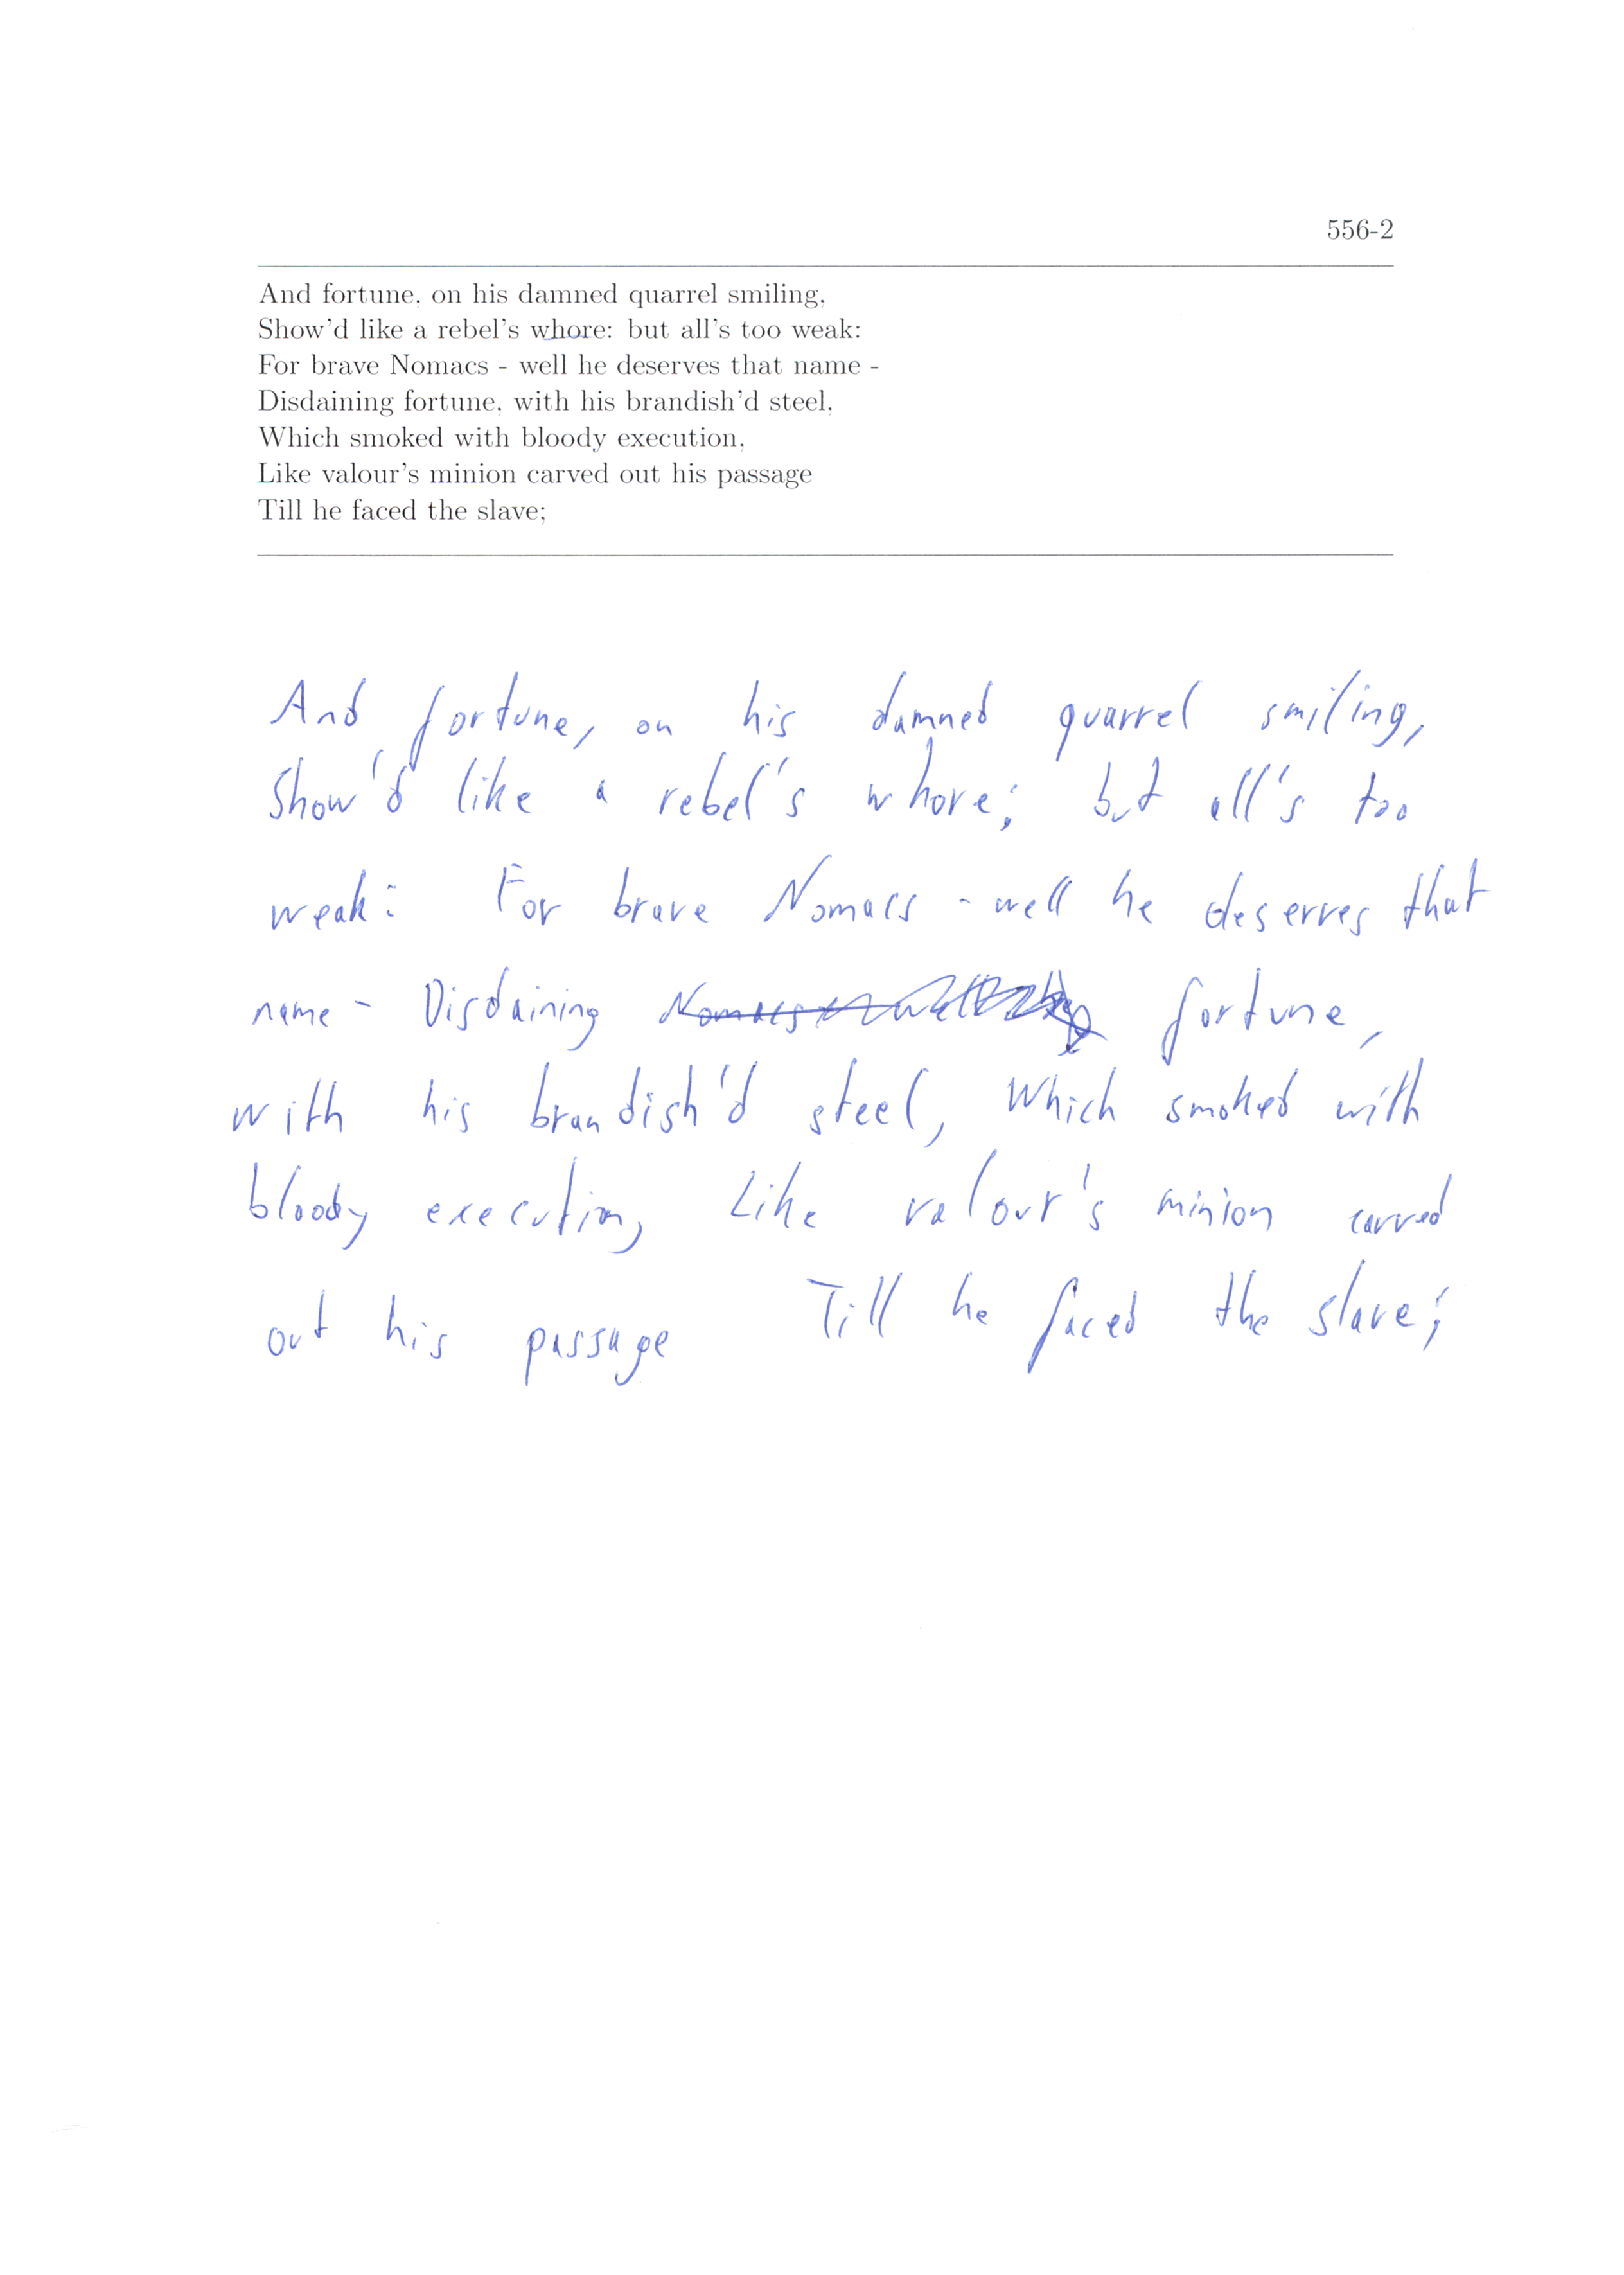 556-2
And fortune, on his damned quarrel smiling,
Show'd like a rebel's whore: but all's too weak:
For brave Nomacs - well he deserves that name -
Disdaining fortune, with his brandish'd steel,
Which smoked with bloody execution,
Like valour's minion carved out his passage
Till he faced the slave;
And fortune, on his damned quarrel smiling,
Show'd like a rebel's whore; but all's too
weak: For brave Nomacs - well he deserves that
name - Disdaining Nomacs fortune,
with his brandish'd steel, Which smoked with
bloody execution, Like valour's minion carved
out his passage Till he faced the slave;